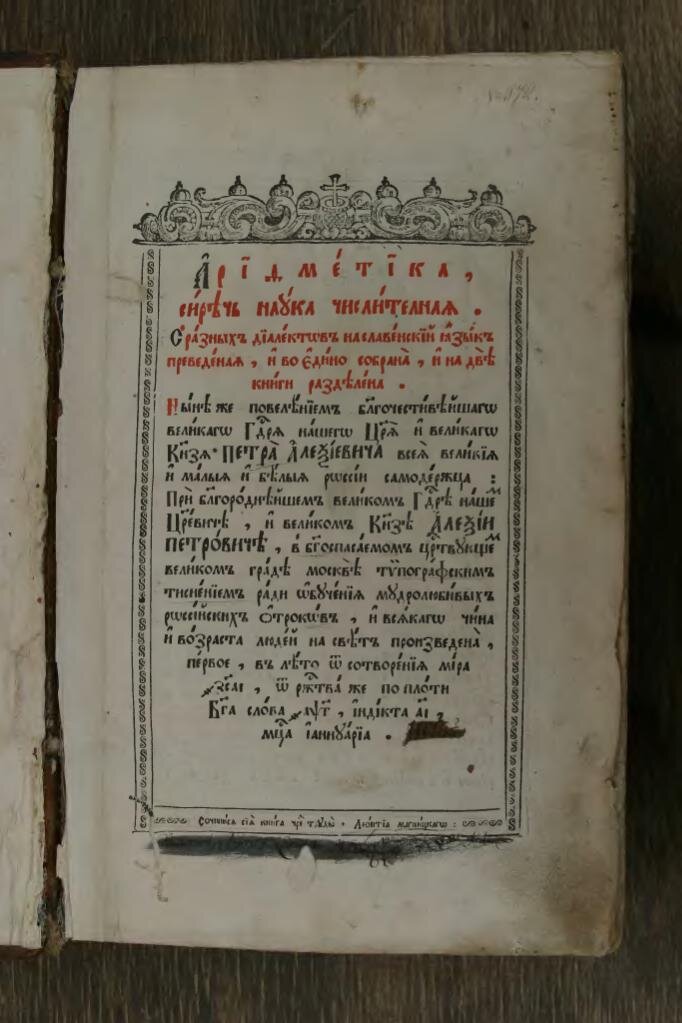 А҆риѳме́тїка,
си́рѣчь нау́ка числи́телная.
С̾ ра́зныхъ дїале́ктѡвъ на славе́нскїй ꙗ҆зы́къ
преведе́ная, и҆ во є҆ди́но собрана̀, и҆ на двѣ̀
кни́ги раздѣле́на.
Ны́нѣ же повелѣ́нїемъ бл҃гочести́вѣйшагѡ
вели́кагѡ Гдⷭ҇ра на́шегѡ Цр҃ѧ̀ и҆ вели́кагѡ
Кн҃зѧ ПЕТРА̀ А҆ЛЕѮІ́ЕВИЧА всеѧ̀ вели́кїѧ
и҆ ма́лыѧ и҆ бѣ́лыѧ рѡссі́и самоде́ржца :
Прѝ бл҃горо́днѣйшемъ вели́комъ Гдⷭ҇рѣ на́шеⷨ
Цр҃е́вичѣ, и҆ вели́комъ Кн҃зѣ А҆ЛЕѮІ́И
ПЕТРО́ВИЧѢ, в̾ бг҃оспаса́емомъ црⷭ҇твꙋ́ющеⷨ
вели́комъ гра́дѣ москвѣ̀ тѷпогра́фскимъ
тисне́нїемъ ра́ди ѡ҆бꙋче́нїѧ мꙋдролюби́выхъ
рѡссі́йскихъ ѻ҆́трокѡвъ, и҆ всѧ́кагѡ чи́на
и҆ во́зраста люде́й на свѣ́тъ произведена̀,
пе́рвое, въ лѣ́то ѿ сотворе́нїѧ мі́ра
҂зс҃аі, ѿ ржⷭ҇тва́ же по пло́ти
Бг҃а сло́ва ҂аѱ҃г, і҆ндї́кта а҃і,
мцⷭ҇а і҆аннꙋа́рїа.
Сочини́сѧ сїѧ̀ кни́га чреⷥ трꙋды̀ Лео́нтїа магни́цкагѡ :